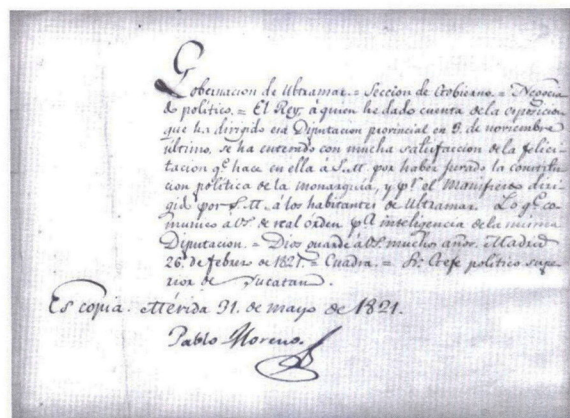 Gobernacion de Ultramar. = Seccion de Gobierno. = Negocia
do politico. = El Rey, á quien he dado cuenta de la exposicion
que ha dirigido esa Diputacion provincial en 9. de noviembre
último, se ha enterado con mucha satisfaccion de la felici-
tacion qe. hace en ella á S.M. por haber jurado la constitu-
cion política de la monarquia, y pr. el manifiesto diri-
gido por S.M. á los habitantes de Ultramar. Lo qe. co-
munico a VS. de real órden pa. inteligencia de la misma
Diputacion. = Dios guarde á VS. muchos años. Madrid
26. de febrero de 1821. = Cuadra. = Sr. Gefe político supe-
rior de Yucatan.
Es copia. Mérida 31. de mayo de 1821.
Pablo Moreno.